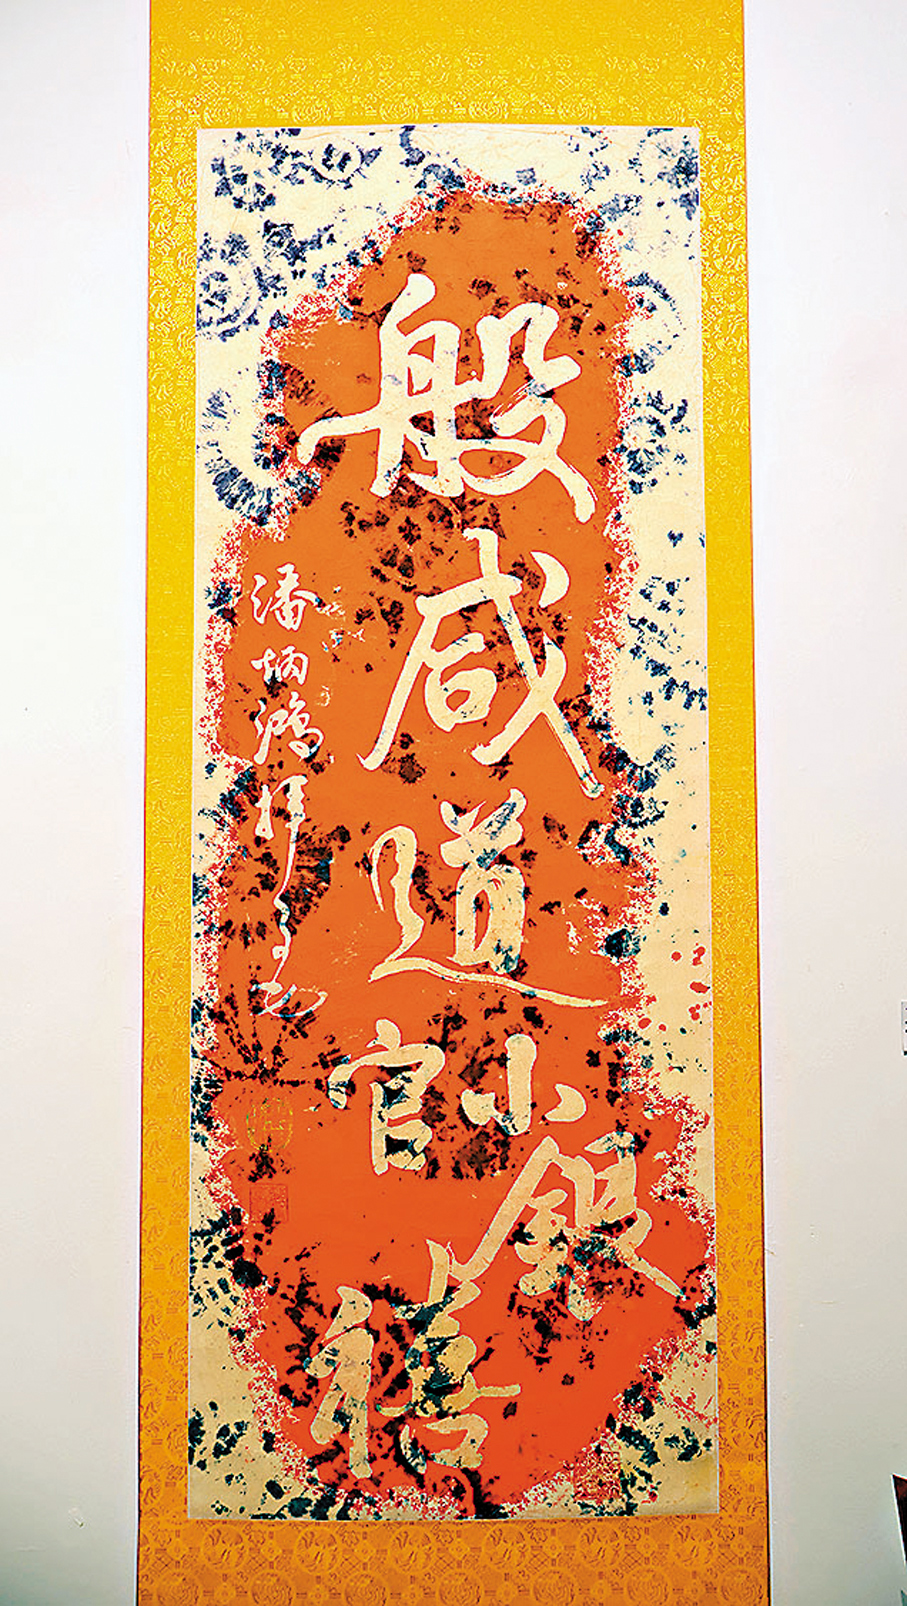 般咸道官小銀禧
潘炳鴻拜